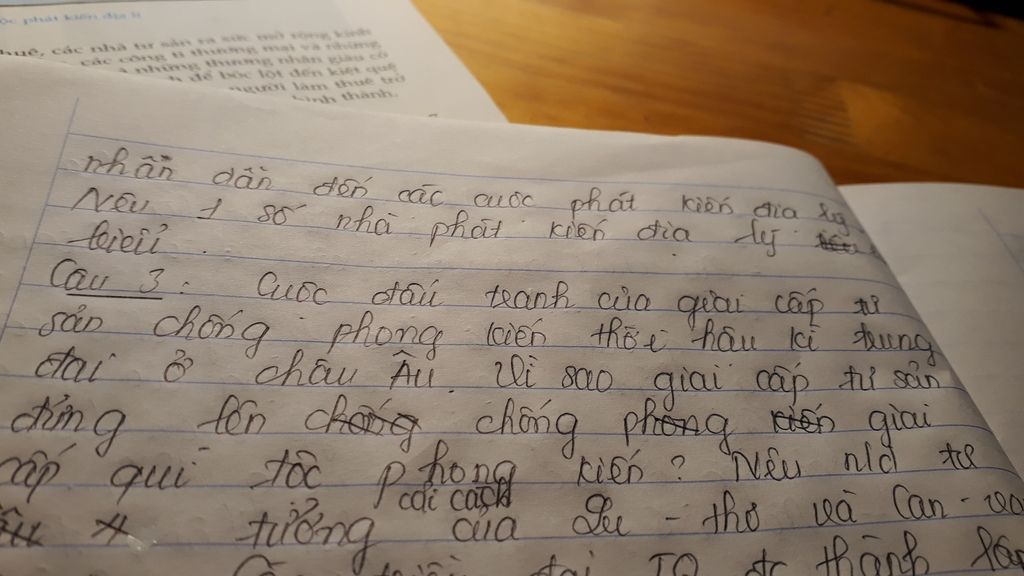 ộc phát kiến địa lí
huê, các nhà tư sản ra sức mở rộng kinh
các công ti thương mại và những
những thương nhân giàu có
để bóc lột đến kiệt quệ
người làm thuê trở
hình thành.
nhân dân đến các cuộc phát kiến địa lý
Nêu 1 số nhà phát kiến địa lý
biểu.
Câu 3: Cuộc đấu tranh của giai cấp tư
sản chống phong kiến thời hậu kì trung
đại ở châu Âu. Vì sao giai cấp tư sản
đứng lên chống chống phong kiến giai
cấp quí tộc phong kiến? Nêu nld tư
cải cách
tưởng của Lu-thơ và Can-va
TQ đc thành lập